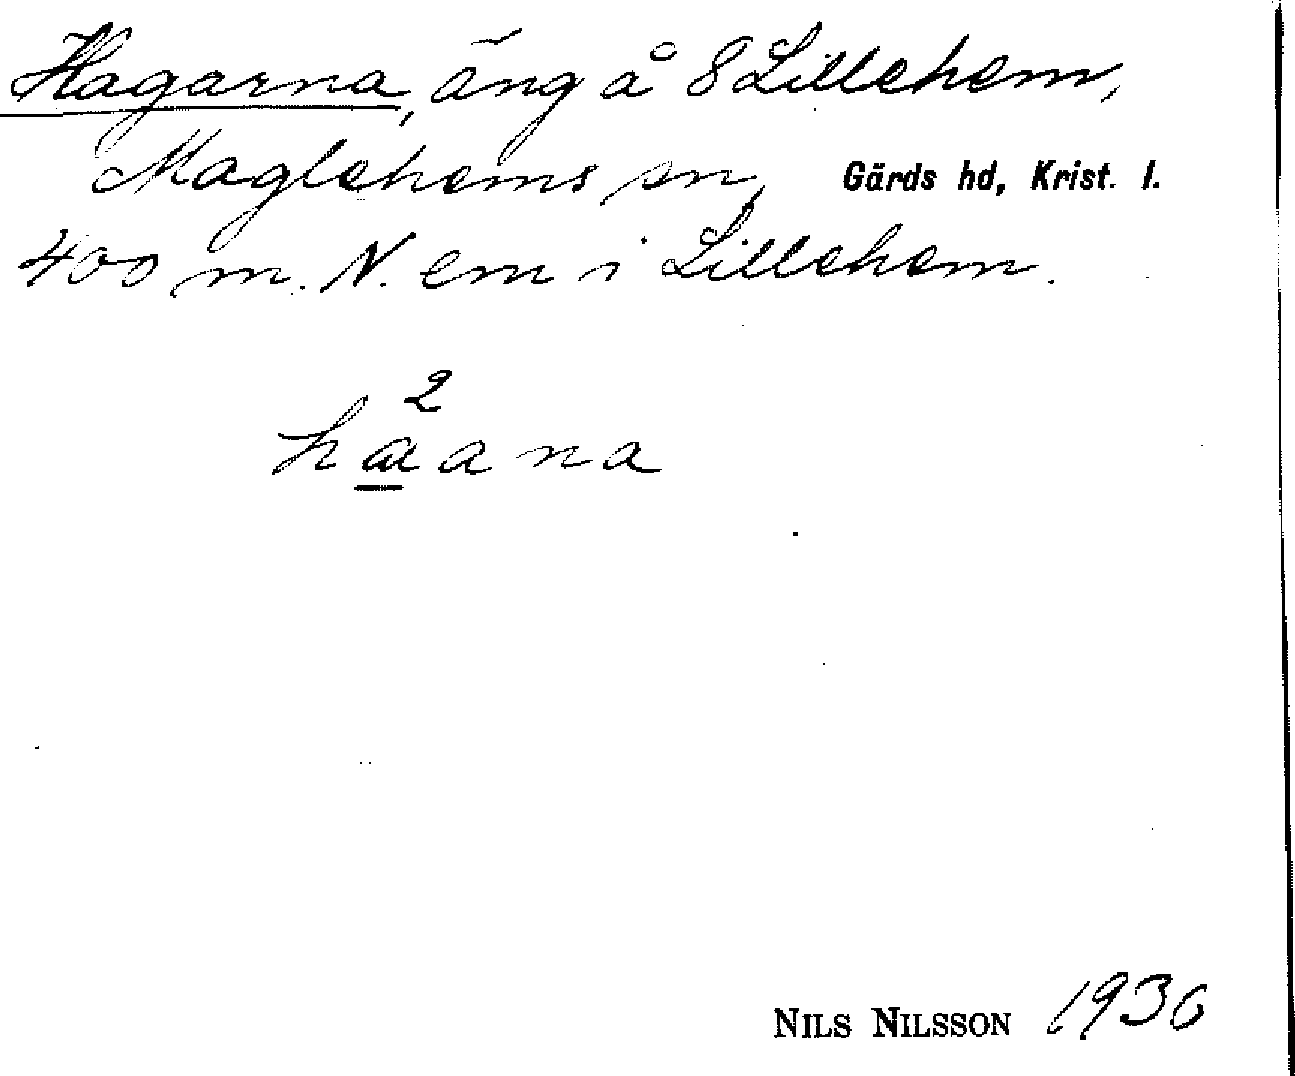 Hagarna, äng å 8 Lillehem,
Maglehems sn, Gärds hd, Krist. l.
400 m. N. em i Lillehem.
2
haana
NILS NILSSON 1930